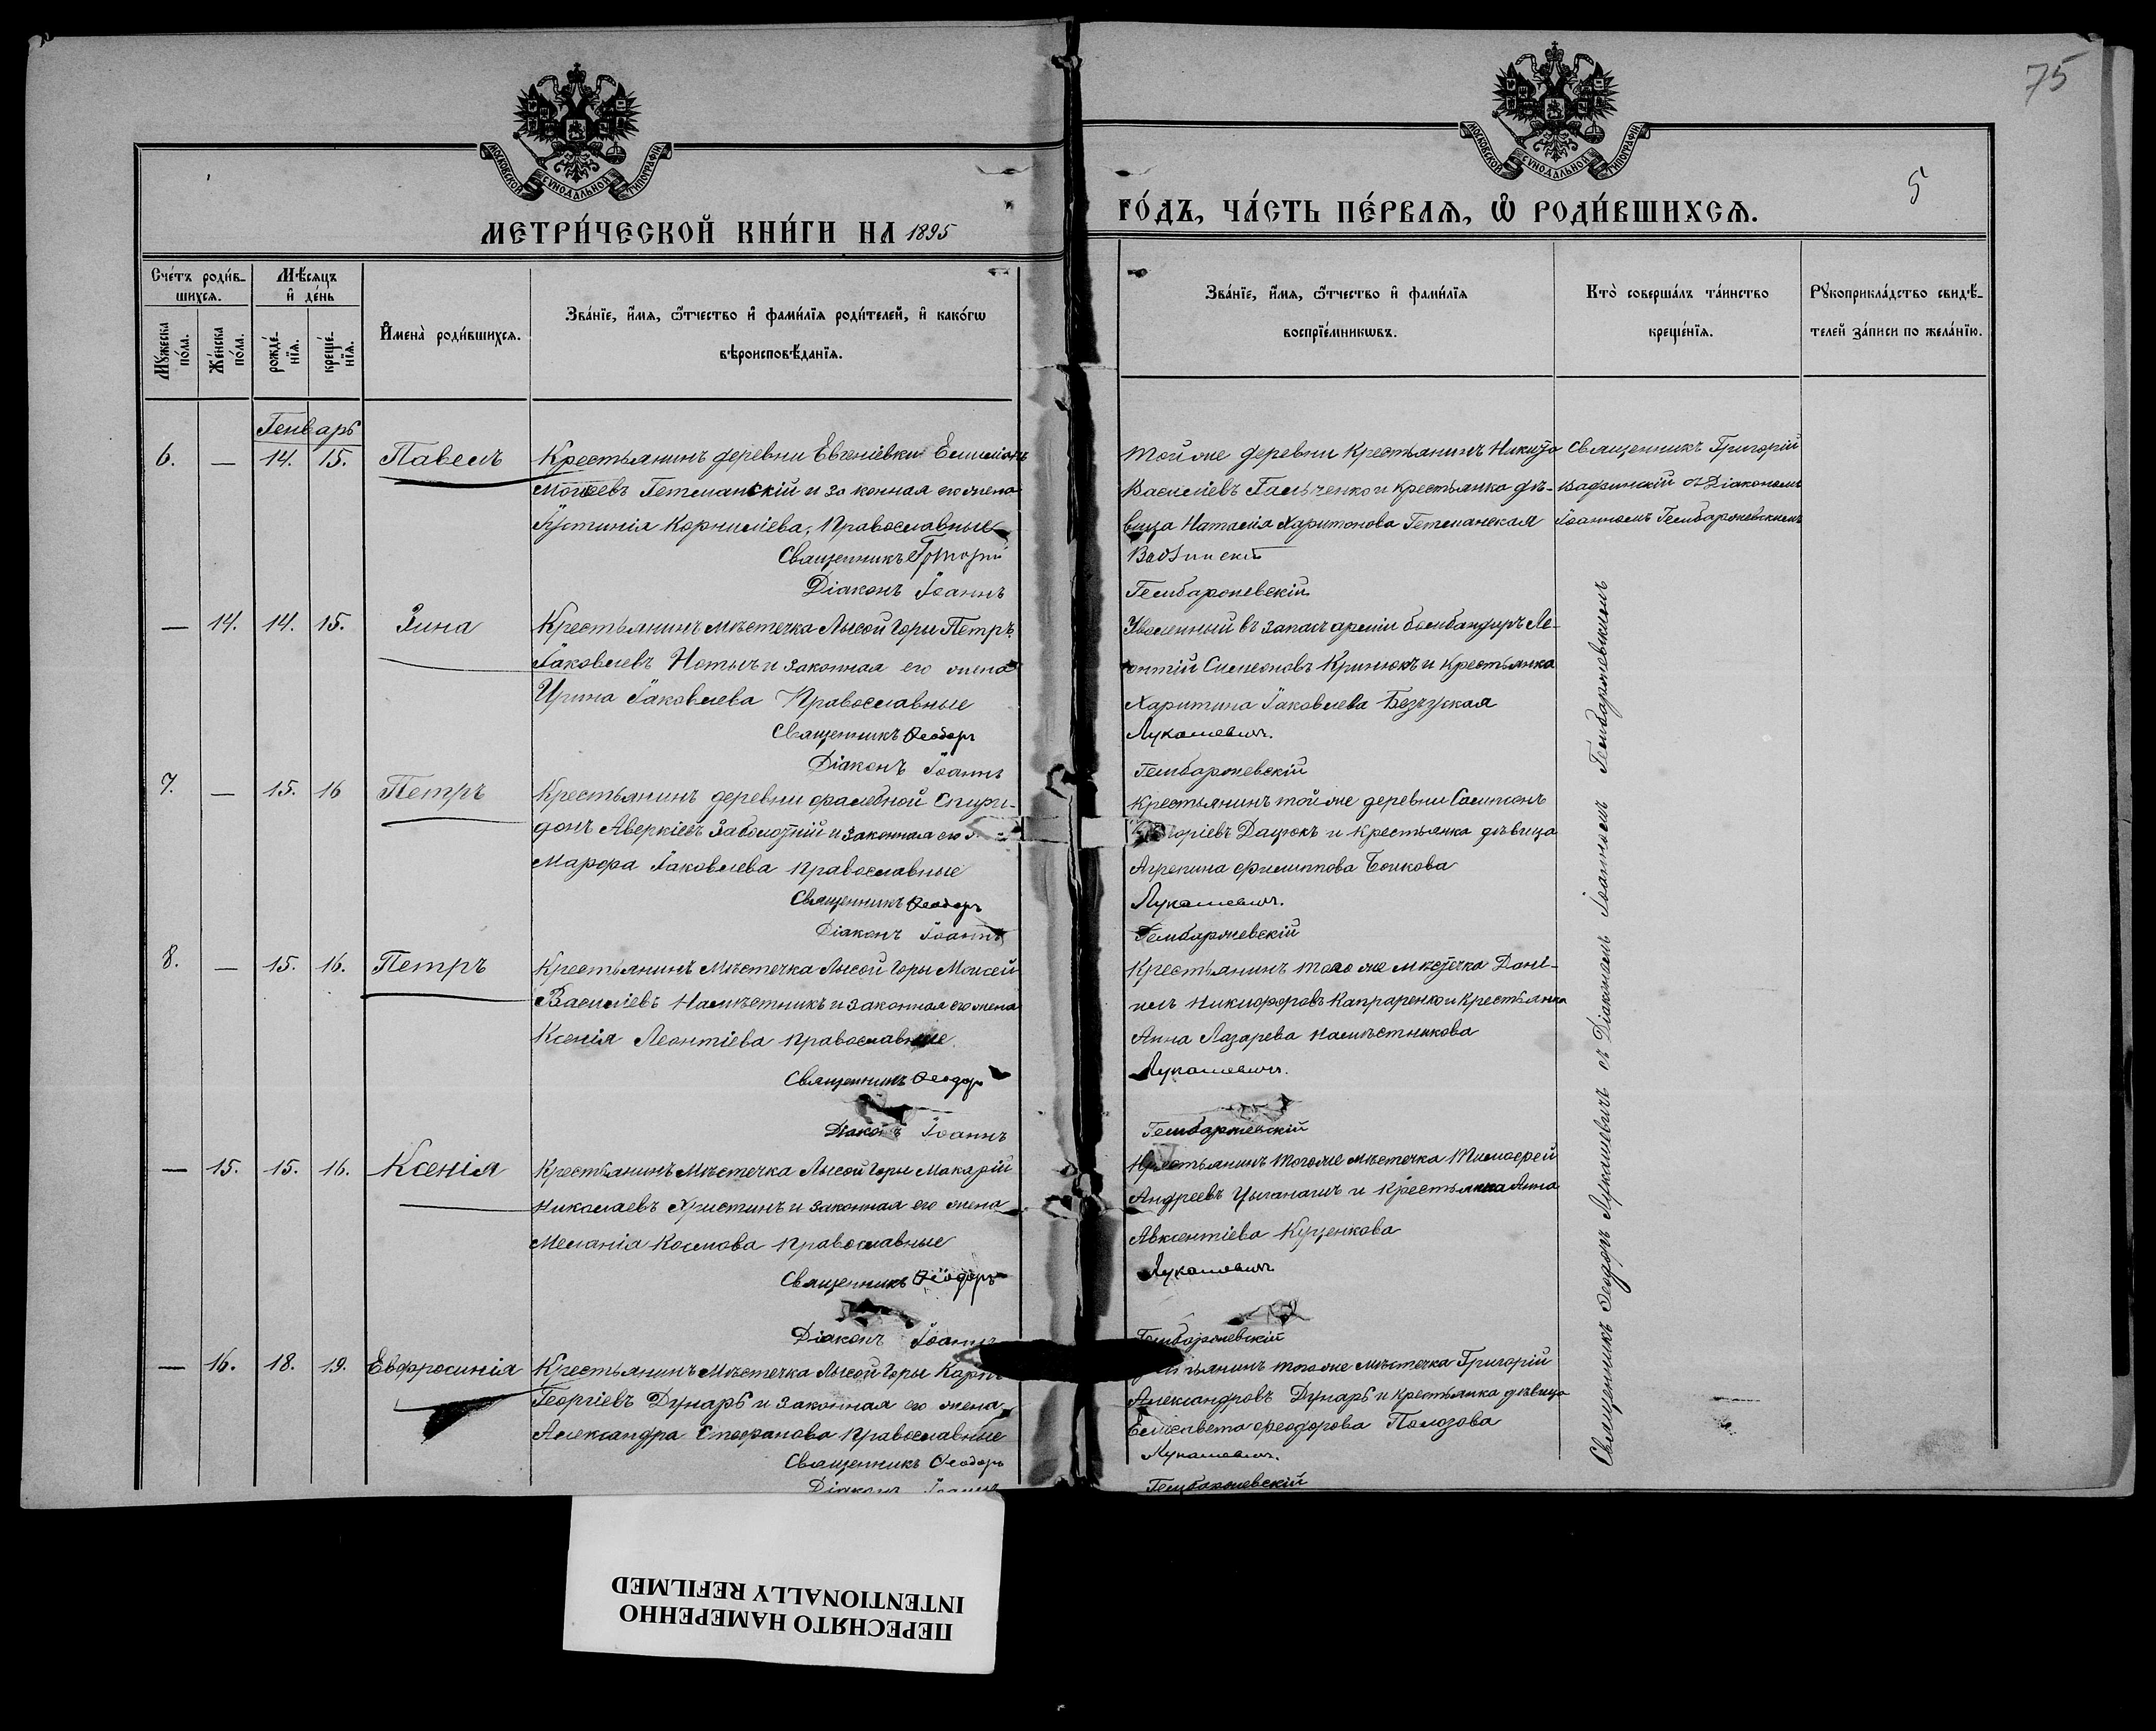 75
5
МОСКОВСКОЙ СѴНОДАЛЬНОЙ ТИПОГРАФІИ
МОСКОВСКОЙ СѴНОДАЛЬНОЙ ТИПОГРАФІИ
МЕТРИ́ЧЕСКОЙ КНИ́ГИ НА 1895
ГО́ДЪ, ЧА́СТЬ ПЕ́РВАЯ, Ѽ РОДИ́ВШИХСЯ.
Сче́тъ роди́в-
шихся.
Мѣ́сяцъ
и де́нь
Мꙋ́жеска по́ла.
Же́нска по́ла.
рожде́-
нїя.
креще́-
нїя.
Имена̀ роди́вшихся.
Зва́нїе, и́мя, ѻ́тчество и фами́лїя роди́телей, и како́гѡ
вѣроисповѣ́данїя.
Зва́нїе, и́мя, ѻ́тчество и фами́лїя
воспрїе́мникѡвъ.
Кто̀ соверша́лъ та́инство
креще́нїя.
Рꙋкоприкла́дство свидѣ́-
телей за́писи по жела́нїю.
Генварь
6. — 14. 15. Павелъ
Крестьянинъ деревни Евгеніевки Емиліанъ
Моѵсеевъ Гетманскій и законная его жена
Іустинія Корниліева, Православные
Священникъ Григорій
Діаконъ Іоаннъ
Той же деревни Крестьянинъ Никита
Василіевъ Гальченко и крестьянка дѣ-
вица Наталія Харитонова Гетманская
Вадзинскій
Гембаржевскій
Священникъ Григорій
Вадзинскій съ Діакономъ
Іоанномъ Гембаржевскимъ
— 14. 14. 15. Зина
Крестьянинъ мѣстечка Лысой Горы Петръ
Іаковлевъ Нотычъ и законная его жена
Ирина Іаковлева Православные
Священникъ Ѳеодоръ
Діаконъ Іоаннъ
Уволенный въ запасъ арміи бомбандиръ Ле-
онтій Симеоновъ Кринюкъ и Крестьянка
Харитина Іаковлева Безузкая
Лукашевичъ.
Гембаржевскій
7. — 15. 16 Петръ
Крестьянинъ деревни Спири-
донъ Аверкіевъ Заболотній и законная его
Марфа Іаковлева православные
Священникъ Ѳеодоръ
Діаконъ Іоаннъ
Крестьянинъ той же деревни Самсонъ
Дацюкъ и крестьянка дѣвица
Агрепина Филиппова Бойкова
Лукашевичъ.
Гембаржевскій
8. — 15. 16. Петръ
Крестьянинъ Мѣстечка Лысой Горы Моисей
Василіевъ Намѣстникъ и законная его жена
Ксенія Леонтіева православные
Священникъ Ѳеодоръ
Діаконъ Іоаннъ
Крестьянинъ того же мѣстечка Дані-
илъ Никифоровъ Капраренко и Крестьянка
Анна Лазарева Намѣстникова
Лукашевичъ.
Гембаржевскій
— 15. 15. 16. Ксенія
Крестьянинъ Мѣстечка Лысой Горы Макарій
Николаевъ Христинъ и законная его жена
Меланія Космова православные
Священникъ Ѳеодоръ
Діаконъ Іоаннъ
Крестьянинъ того же мѣстечка Тимофей
Андреевъ и Крестьянка Анна
Авксентіева Куценкова
Лукашевичъ
Гембаржевскій
— 16. 18. 19. Евфросинія
Крестьянинъ Мѣстечка Лысой Горы Карпъ
Георгіевъ Дунарь и законная его жена
Александра Стефанова православные
Священникъ Ѳеодоръ
Діаконъ Іоаннъ
Крестьянинъ того же мѣстечка Григорій
Александровъ Дунарь и крестьянка дѣвица
Елисавета Феодорова Полозова
Лукашевичъ.
Гембаржевскій
Священникъ Ѳеодоръ Лукашевичъ съ Діакономъ Іоанномъ Гембаржевскимъ
ПЕРЕСНЯТО НАМЕРЕННО
INTENTIONALLY REFILMED